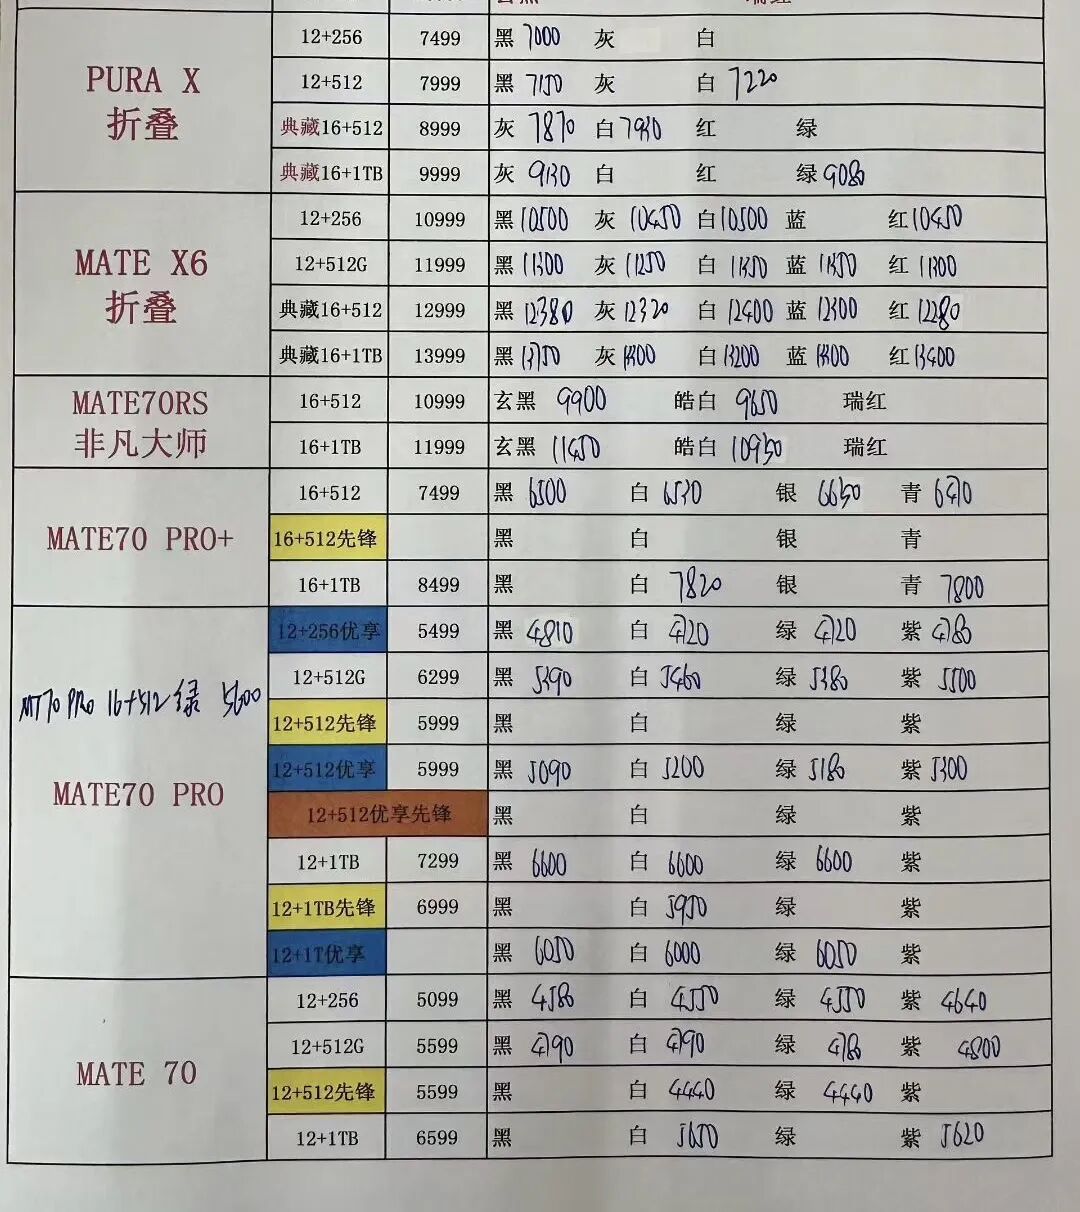 PURA X
折叠
12+256 7499 黑 7000 灰 白
12+512 7999 黑 7150 灰 白 7220
典藏16+512 8999 灰 7870 白 7930 红 绿
典藏16+1TB 9999 灰 9130 白 红 绿 9080
MATE X6
折叠
12+256 10999 黑 10500 灰 10450 白 10500 蓝 红 10450
12+512G 11999 黑 11300 灰 11250 白 11350 蓝 11350 红 11300
典藏16+512 12999 黑 12380 灰 12320 白 12400 蓝 12300 红 12280
典藏16+1TB 13999 黑 13750 灰 13300 白 13200 蓝 13300 红 13400
MATE70RS
非凡大师
16+512 10999 玄黑 9900 皓白 9650 瑞红
16+1TB 11999 玄黑 11450 皓白 10930 瑞红
MATE70 PRO+
16+512 7499 黑 6500 白 6530 银 6630 青 6470
16+512先锋 黑 白 银 青
16+1TB 8499 黑 白 7820 银 青 7800
MT70 PRO 16+512 绿 5600
MATE70 PRO
12+256优享 5499 黑 4810 白 4720 绿 4720 紫 4780
12+512G 6299 黑 5390 白 5460 绿 5380 紫 5500
12+512先锋 5999 黑 白 绿 紫
12+512优享 5999 黑 5090 白 5200 绿 5180 紫 5300
12+512优享先锋 黑 白 绿 紫
12+1TB 7299 黑 6600 白 6600 绿 6600 紫
12+1TB先锋 6999 黑 白 5950 绿 紫
12+1T优享 黑 6050 白 6000 绿 6050 紫
MATE 70
12+256 5099 黑 4580 白 4550 绿 4550 紫 4640
12+512G 5599 黑 4790 白 4790 绿 4780 紫 4800
12+512先锋 5599 黑 白 4440 绿 4440 紫
12+1TB 6599 黑 白 5650 绿 紫 5620